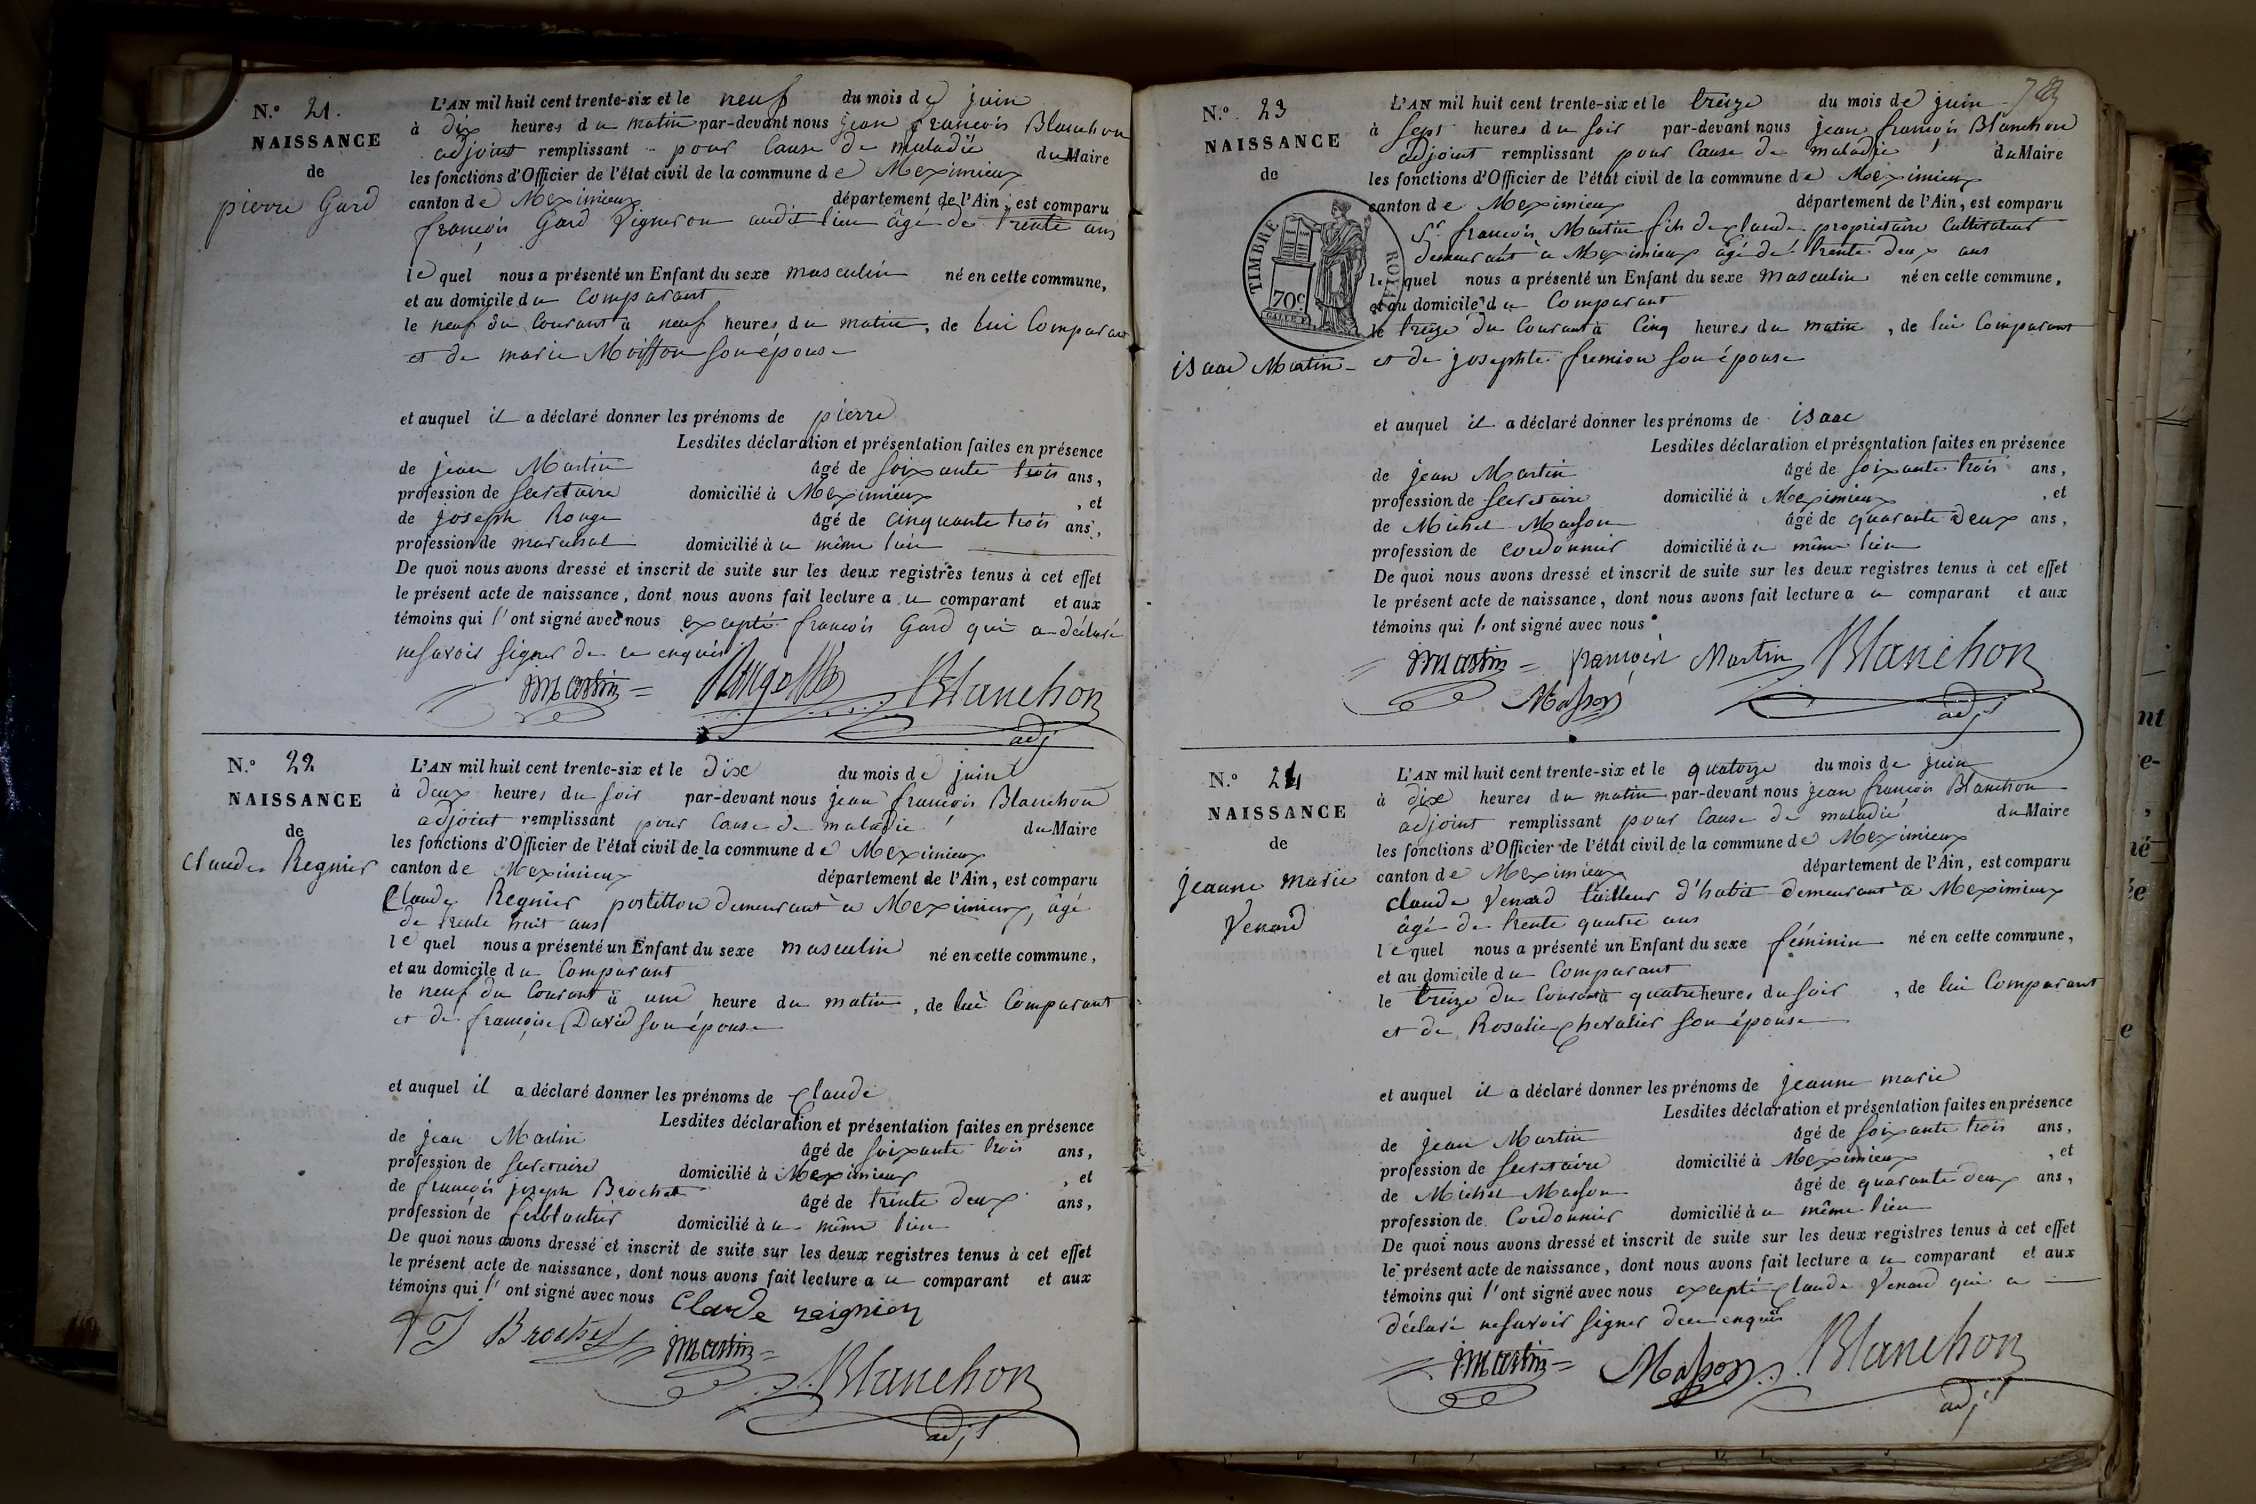 N.° 21.
NAISSANCE
de
pierre Gard
L'AN mil huit cent trente-six et le neuf du mois de juin
à dix heures du matin par-devant nous jean françois Blanchon
adjoint remplissant pour Cause de maladie du Maire
les fonctions d'Officier de l'état civil de la commune de Meximieux
canton de Meximieux département de l'Ain, est comparu
françois Gard Vigneron audit lieu âgé de trente ans
le quel nous a présenté un Enfant du sexe masculin né en cette commune,
et au domicile du Comparant
le neuf du Courant à neuf heures du matin, de lui Comparant
et de marie Moisson son épouse
et auquel il a déclaré donner les prénoms de pierre
Lesdites déclaration et présentation faites en présence
de jean Martin âgé de soixante trois ans,
profession de secretaire domicilié à Meximieux, et
de joseph Rouge âgé de cinquante trois ans,
profession de marechal domicilié à u même lieu
De quoi nous avons dressé et inscrit de suite sur les deux registres tenus à cet effet
le présent acte de naissance, dont nous avons fait lecture a u comparant et aux
témoins qui l'ont signé avec nous excepté françois Gard qui a déclaré
ne savoir signer de ce enquis
jmartin Blanchon
adj
N.° 22
NAISSANCE
de
Claude Regnier
L'AN mil huit cent trente-six et le dix du mois de juin
à deux heures du soir par-devant nous jean françois Blanchon
adjoint remplissant pour Cause de maladie du Maire
les fonctions d'Officier de l'état civil de la commune de Meximieux
canton de Meximieux département de l'Ain, est comparu
Claude Regnier postillon demeurant à Meximieux, âgé
de trente huit ans
le quel nous a présenté un Enfant du sexe masculin né en cette commune,
et au domicile du Comparant
le neuf du Courant à une heure du matin, de lui Comparant
et de françoise David son épouse
et auquel il a déclaré donner les prénoms de Claude
Lesdites déclaration et présentation faites en présence
de jean Martin âgé de soixante trois ans,
profession de secretaire domicilié à Meximieux, et
de françois joseph Brochet âgé de trente deux ans,
profession de ferblantier domicilié à u même lieu
De quoi nous avons dressé et inscrit de suite sur les deux registres tenus à cet effet
le présent acte de naissance, dont nous avons fait lecture a u comparant et aux
témoins qui l'ont signé avec nous Claude raignier
Brochet jmartin
Blanchon
adjt
78
N.° 23
NAISSANCE
de
TIMBRE ROYAL
70c
isaac Martin
L'AN mil huit cent trente-six et le treize du mois de juin
à sept heures du soir par-devant nous jean françois Blanchon
adjoint remplissant pour Cause de maladie du Maire
les fonctions d'Officier de l'état civil de la commune de Meximieux
canton de Meximieux département de l'Ain, est comparu
Sr françois Martin fils de Claude proprietaire Cultivateur
demeurant à Meximieux âgé de trente deux ans
le quel nous a présenté un Enfant du sexe masculin né en cette commune,
et au domicile du Comparant
le treize du Courant à Cinq heures du matin, de lui Comparant
et de josephte fremion son épouse
et auquel il a déclaré donner les prénoms de isaac
Lesdites déclaration et présentation faites en présence
de jean Martin âgé de soixante trois ans,
profession de secretaire domicilié à Meximieux, et
de Michel Masson âgé de quarante deux ans,
profession de cordonnier domicilié à u même lieu
De quoi nous avons dressé et inscrit de suite sur les deux registres tenus à cet effet
le présent acte de naissance, dont nous avons fait lecture a u comparant et aux
témoins qui l'ont signé avec nous
jmartin françois Martin Blanchon
Masson adjt
N.° 24
NAISSANCE
de
jeanne marie
Venard
L'AN mil huit cent trente-six et le quatorze du mois de juin
à dix heures du matin par-devant nous jean françois Blanchon
adjoint remplissant pour Cause de maladie du Maire
les fonctions d'Officier de l'état civil de la commune de Meximieux
canton de Meximieux département de l'Ain, est comparu
Claude Venard tailleur d'habit demeurant à Meximieux
âgé de trente quatre ans
le quel nous a présenté un Enfant du sexe féminin né en cette commune,
et au domicile du Comparant
le treize du Courant à quatre heures du soir, de lui Comparant
et de Rosalie Chevalier son épouse
et auquel il a déclaré donner les prénoms de jeanne marie
Lesdites déclaration et présentation faites en présence
de jean Martin âgé de soixante trois ans,
profession de secretaire domicilié à Meximieux, et
de Michel Masson âgé de quarante deux ans,
profession de Cordonnier domicilié à u même lieu
De quoi nous avons dressé et inscrit de suite sur les deux registres tenus à cet effet
le présent acte de naissance, dont nous avons fait lecture a u comparant et aux
témoins qui l'ont signé avec nous excepté Claude Venard qui a
déclaré ne savoir signer de ce enquis
jmartin Masson Blanchon
adjt